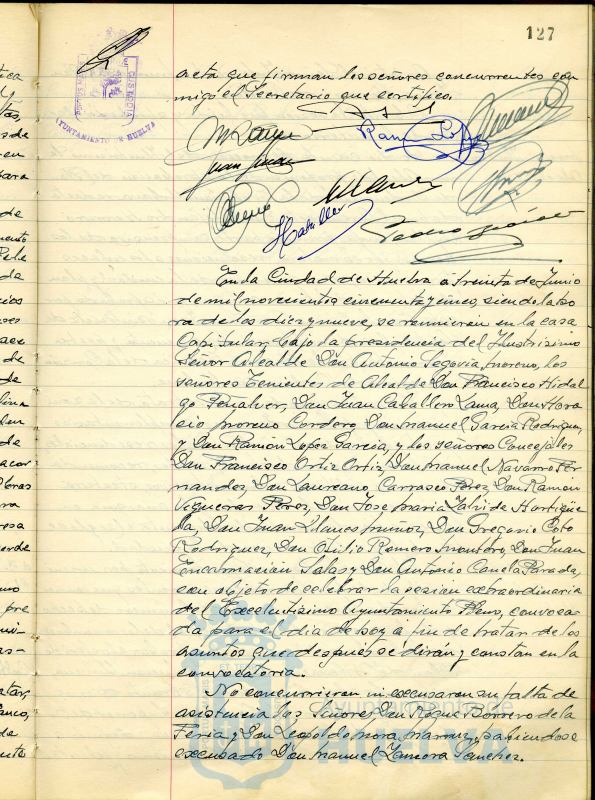 127
acta que firman los señores concurrentes con
migo el Secretario que certifico.
Ramón López
Juan
HCaballero
Pedro
AYUNTAMIENTO DE HUELVA
En la Ciudad de Huelva a treinta de Junio
de mil novecientos cincuenta y cinco, siendo la ho
ra de las diez y nueve, se reunieron en la casa
Capitular, bajo la presidencia del Ilustrisimo
Señor Alcalde Don Antonio Segovia Moreno, los
señores Tenientes de Alcalde Don Francisco Hidal
go Peñalver, Don Juan Caballero Lama, Don Hora
cio Moreno Cordero, Don Manuel Garcia Rodriguez,
y Don Ramón Lopez Garcia, y los señores Concejales
Don Francisco Ortiz Ortiz, Don Manuel Navarro Fer
nandez, Don Laureano Carrasco Perez, Don Ramón
Vigueras Perez, Don Jose Maria de Hortigüe
la, Don Juan Llanes Muñoz, Don Gregorio Coto
Rodriguez, Don Otilio Romero Montero, Don Juan
Encarnacion Salas y Don Antonio Canela Parada,
con objeto de celebrar la sesion extraordinaria
del Excelentisimo Ayuntamiento Pleno, convoca
da para el dia de hoy a fin de tratar de los
asuntos que despues se diran y constan en la
convocatoria.
No concurrieron ni excusaron su falta de
asistencia los Señores Don Roque Borrero de la
Feria y Don Leopoldo Mora habiendose
excusado Don Manuel Zamora Sanchez.
Ayuntamiento de
HUELVA